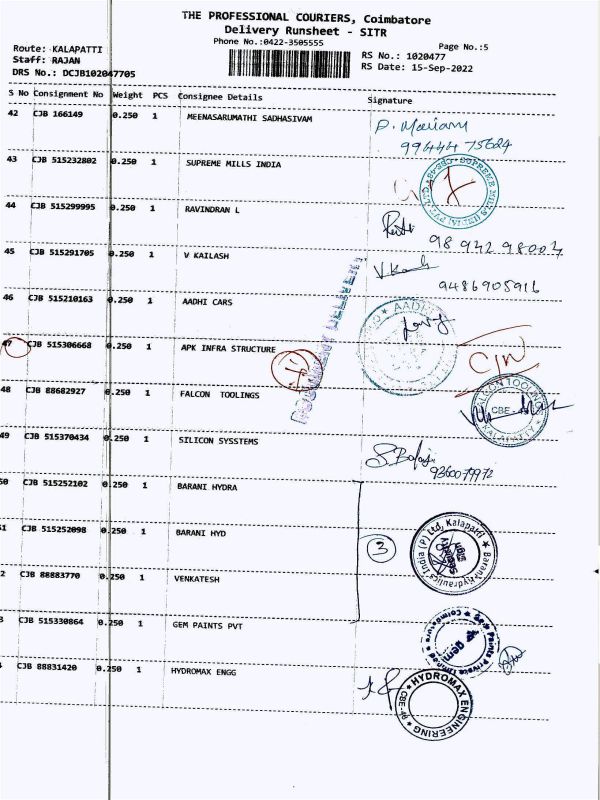 THE PROFESSIONAL COURIERS, Coimbatore
Delivery Runsheet - SITR
Phone No.:0422-3505555
Page No.:5
Route: KALAPATTI
Staff: RAJAN
DRS No.: DCJB102047705
RS No.: 1020477
RS Date: 15-Sep-2022
S No Consignment No Weight PCS Consignee Details Signature
42 CJB 166149 0.250 1 MEENASARUMATHI SADHASIVAM
P. Mariam
99444 75624
43 CJB 515232802 0.250 1 SUPREME MILLS INDIA
SUPREME MILLS INDIA PVT
44 CJB 515299995 0.250 1 RAVINDRAN L
98 942 98004
45 CJB 515291705 0.250 1 V KAILASH
V.Kash
9486905916
46 CJB 515210163 0.250 1 AADHI CARS
AADHI
47 CJB 515306668 0.250 1 APK INFRA STRUCTURE
C/N
48 CJB 88682927 0.250 1 FALCON TOOLINGS
FALCON TOOLING
CBE
KALAPATTY
49 CJB 515370434 0.250 1 SILICON SYSSTEMS
S. Balaji
9360079972
50 CJB 515252102 0.250 1 BARANI HYDRA
51 CJB 515252098 0.250 1 BARANI HYD
3
Barani Hydraulics India (P) Ltd, Kalapatti
Security
Sign
2 CJB 88883770 0.250 1 VENKATESH
3 CJB 515330864 0.250 1 GEM PAINTS PVT
Gem Paints Private Limited
Coimbatore
gem
CJB 88831420 0.250 1 HYDROMAX ENGG
HYDROMAX ENGINEERING
CBE-